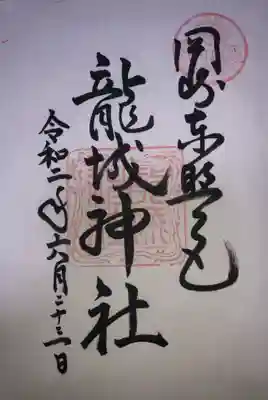 岡崎東照宮
龍城神社
令和二年六月二十三日